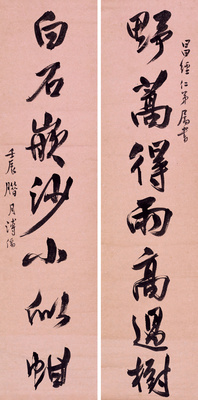 昌經仁弟屬書
野蒿得雨高過樹
白石嵌沙小似蚶
壬辰臘月溥儒